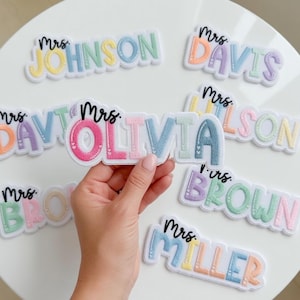 Mrs.
JOHNSON
Mrs.
DAVIS
Mrs.
DAVI
Mrs.
OLIVIA
Mrs.
WILSON
Mrs.
BRO
Mrs.
BROWN
Mrs.
MILLER